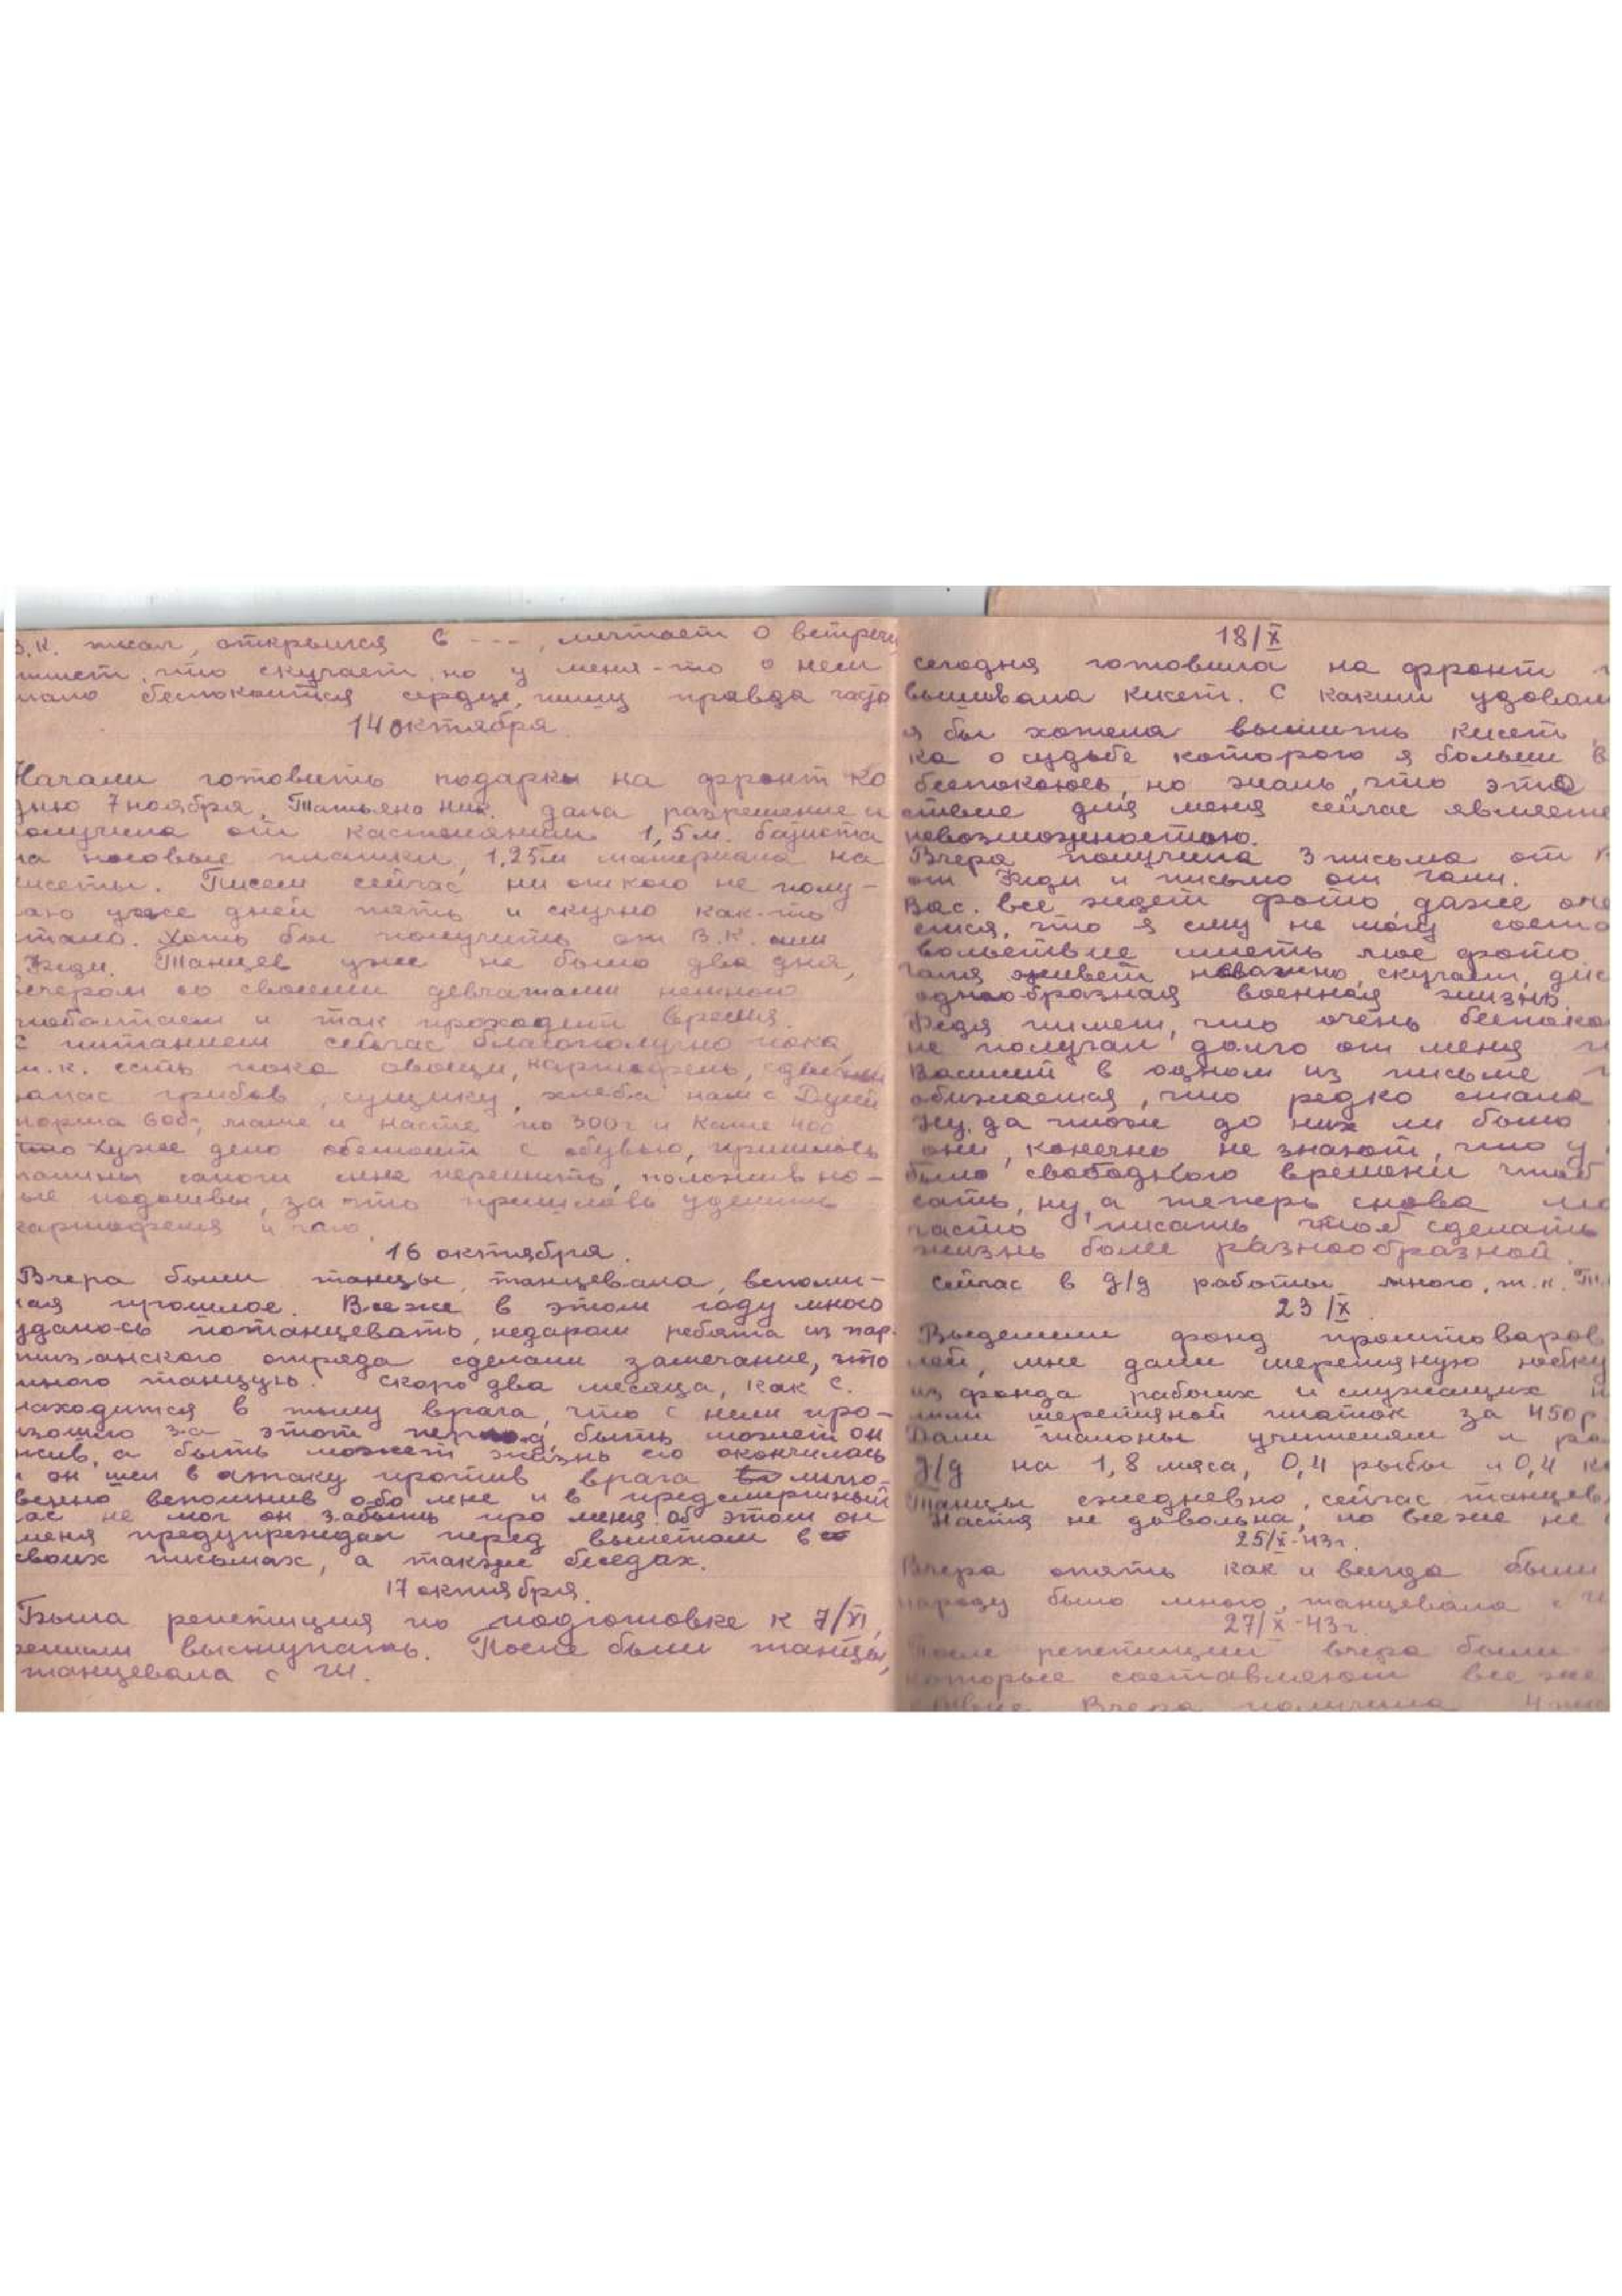 В.К. писал, открылся С ---, мечтает о встречи
пишет, что скучает, но у меня-то о нем
мало беспокоится сердце, пишу правда часто
14 октября
Начали готовить подарки на фронт ко
дню 7 ноября, Татьяна Ник. дала разрешение и
получила от кастелянши 1,5 м. батиста
на носовые платки, 1,25м материала на
кисеты. Писем сейчас ни от кого не полу-
чаю уже дней пять и скучно как-то
стало. Хоть бы получить от В.К. или
Феди. Танцев уже не было два дня,
вечером со своими девчатами немного
поболтаем и так проходит время.
С питанием сейчас благополучно пока,
т.к. есть пока овощи, картофель, сделали
запас грибов, сущику, хлеба нам с Дусей
норма 600, Маше и Насте по 300г и Кате 400
Хуже дело обстоит с обувью, пришлось
сапоги мне перешить, положив но-
ые подошвы, за что пришлось уделить
картофеля и
16 октября.
Вчера были танцы, танцевала, вспоми-
ная прошлое. Все же в этом году много
удалось потанцевать, недаром ребята из пар-
тизанского отряда сделали замечание, что
много танцую. Скоро два месяца, как С.
находится в тылу врага, что с ним про-
изошло за этот период, быть может он
жив, а быть может жизнь его окончилась
и он шел в атаку против врага мгно-
венно вспомнив обо мне и в предсмертный
час не мог он забыть про меня. Об этом он
меня предупреждал перед вылетом в
своих письмах, а также беседах.
17 октября.
Была репетиция по подготовке к 7/XI,
решили выступать. После были танцы,
танцевала с Ш.
18/X
сегодня готовила на фронт
вышивала кисет. С каким удовол
я бы хотела вышить кисет
ка о судьбе которого я больше в
беспокоюсь, но жаль, что это
ствие для меня сейчас является
невозможностью.
Вчера получила 3 письма от
от Феди и письмо от Гали.
Вас. все ждет фото, даже
ется, что я ему не могу
вольствие иметь мое фото
Галя живет неважно, скучает,
однообразная военная жизнь.
Федя пишет, что очень беспоко
не получал долго от меня
Василий в одном из письме
обижается, что редко стала
Ну, да что же до них ли было
они, конечно не знают, что у
было свободного времени чтоб
сать, ну, а теперь снова
часто писать, чтоб сделать
жизнь более разнообразной.
Сейчас в д/д работы много, т.к.
23/X.
Выделили фонд промтоваров
лей, мне дали шерстяную юбку
из фонда рабочих и служащих
или шерстяной платок за 450р.
Дали талоны учителям и ра
д/д на 1,8 мяса, 0,4 рыбы и 0,4
Танцы ежедневно, сейчас танцев
Настя не довольна, но все же не
25/X-43г.
Вчера опять как и всегда были
народу было много, танцевала с
27/X-43г.
После репетиции вчера были
которые составляют все же
Вчера получила 4